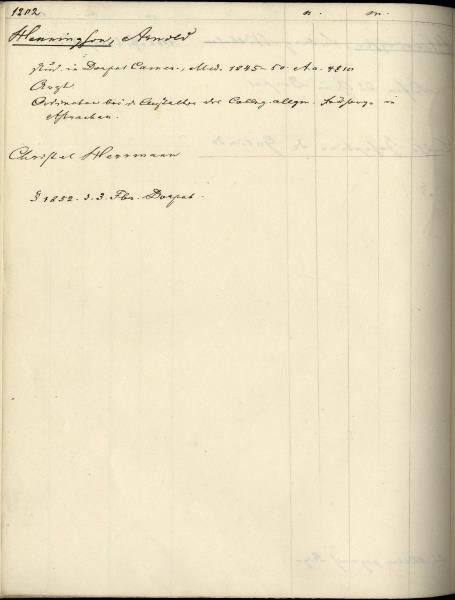 1202 n. m.
Henningson, Arnold
stud. in Dorpat Camer., Med. 1845-50. A.a. 4810
Arzt
Ordinator bei d. Anstalten des Colleg. allgm. Fürsorge in
Astrachan.
Christel Herrmann
§ 1852. d. 3. Fbr. Dorpat.